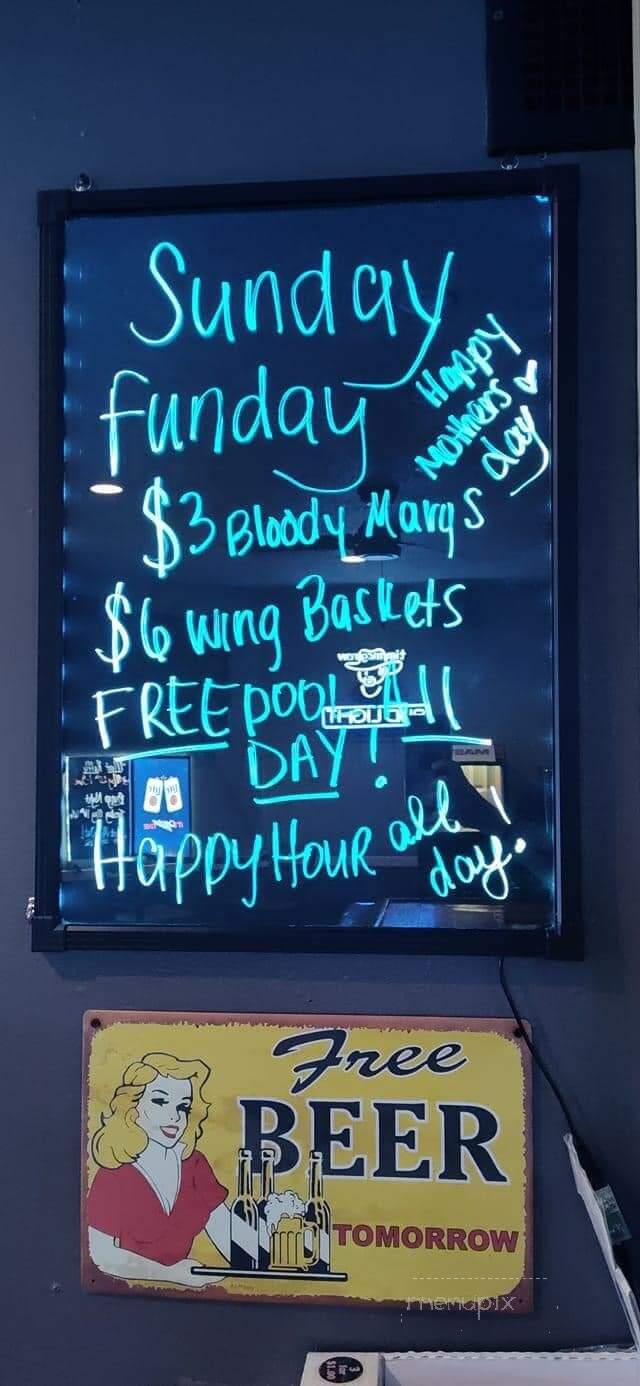 Sunday
funday
Happy
Mothers
day
$3 Bloody Marys
$6 Wing Baskets
FREE pool All
DAY!
Happy Hour all
day!
Free
BEER
TOMORROW
menupix
3
for
$1.00